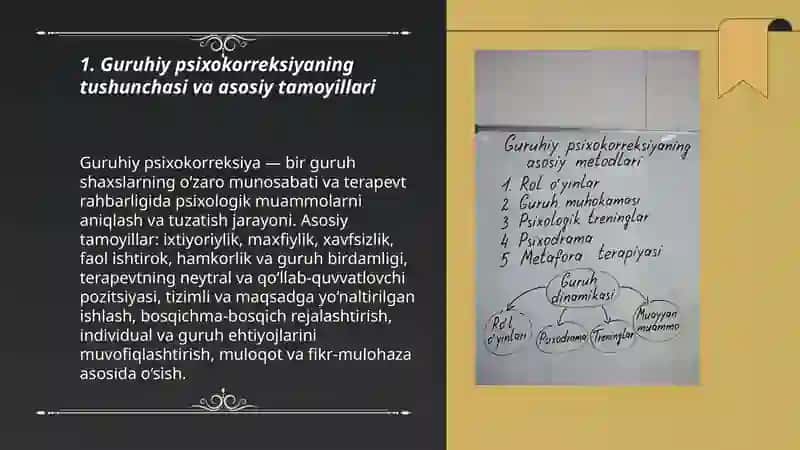 1. Guruhiy psixokorreksiyaning
tushunchasi va asosiy tamoyillari
Guruhiy psixokorreksiya — bir guruh
shaxslarning o‘zaro munosabati va terapevt
rahbarligida psixologik muammolarni
aniqlash va tuzatish jarayoni. Asosiy
tamoyillar: ixtiyoriylik, maxfiylik, xavfsizlik,
faol ishtirok, hamkorlik va guruh birdamligi,
terapevtning neytral va qo‘llab-quvvatlovchi
pozitsiyasi, tizimli va maqsadga yo‘naltirilgan
ishlash, bosqichma-bosqich rejalashtirish,
individual va guruh ehtiyojlarini
muvofiqlashtirish, muloqot va fikr-mulohaza
asosida o‘sish.
Guruhiy psixokorreksiyaning
asosiy metodlari
1. Rol o'yinlar
2 Guruh muhokamasi
3 Psixologik treninglar
4 Psixodrama
5 Metafora terapiyasi
Guruh
dinamikasi
Rol
o'yinlari
Psixodrama
Treninglar
Muayyan
muammo